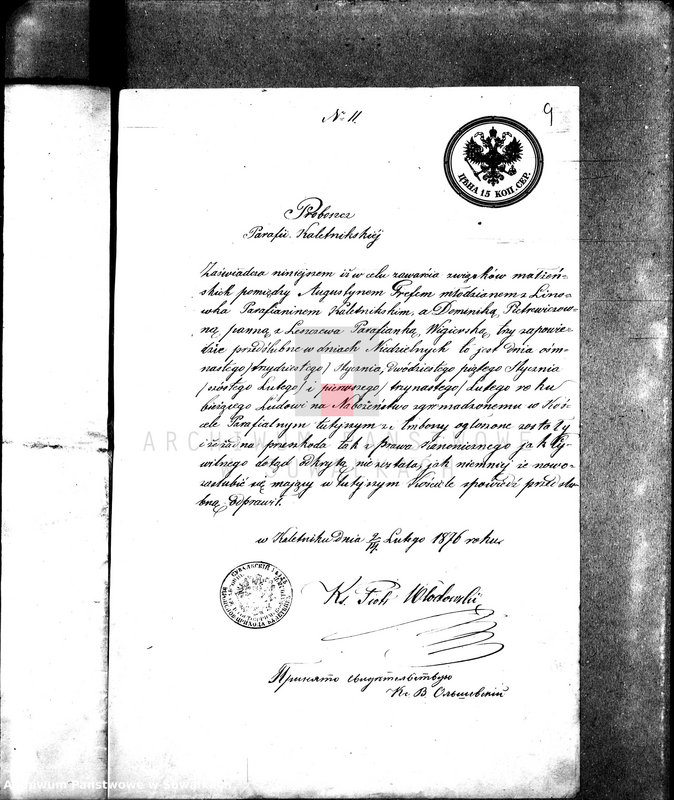 № 11.
9
ЦѢНА 15 КОП. СЕР.
Proboszcz
Parafii Kaletnikskiéj
Zaświadcza niniejszem iż w celu zawarcia związków małżeń-
skich pomiędzy Augustynem Grefem młodzianem z Lino-
wka Parafianinem Kaletnikskim, a Dominiką Pietrewiczow-
ną panną z Leszczewa Parafianką Wigierską, trzy zapowie-
dzie przedślubne w dniach Niedzielnych to jest dnia ośm-
nastego /trzydziestego/ Stycznia, dwódziestego piątego Stycznia
/szóstego Lutego/ i pierwszego /trzynastego/ Lutego roku
bieżącego Ludowi na Nabożeństwo zgromadzonemu w Koś-
ciele Parafialnym tutejszym z Ambony ogłoszone zostały
i że żadna przeszkoda tak z prawa Kanonicznego jak Cy-
wilnego dotąd odkrytą nie została, jak niemniej że nowo-
zaślubić się mający w tutejszym Kościele spowiedź przedślu-
bną odprawił.
w Kaletniku dnia 2/14 Lutego 1876 roku
Ks. Piotr Włodowski
Принято свидѣтельствую
Кс. В. Ольшевскій
ARCHIWUM PAŃSTWOWE
W SUWAŁKACH
Archiwum Państwowe w Suwałkach